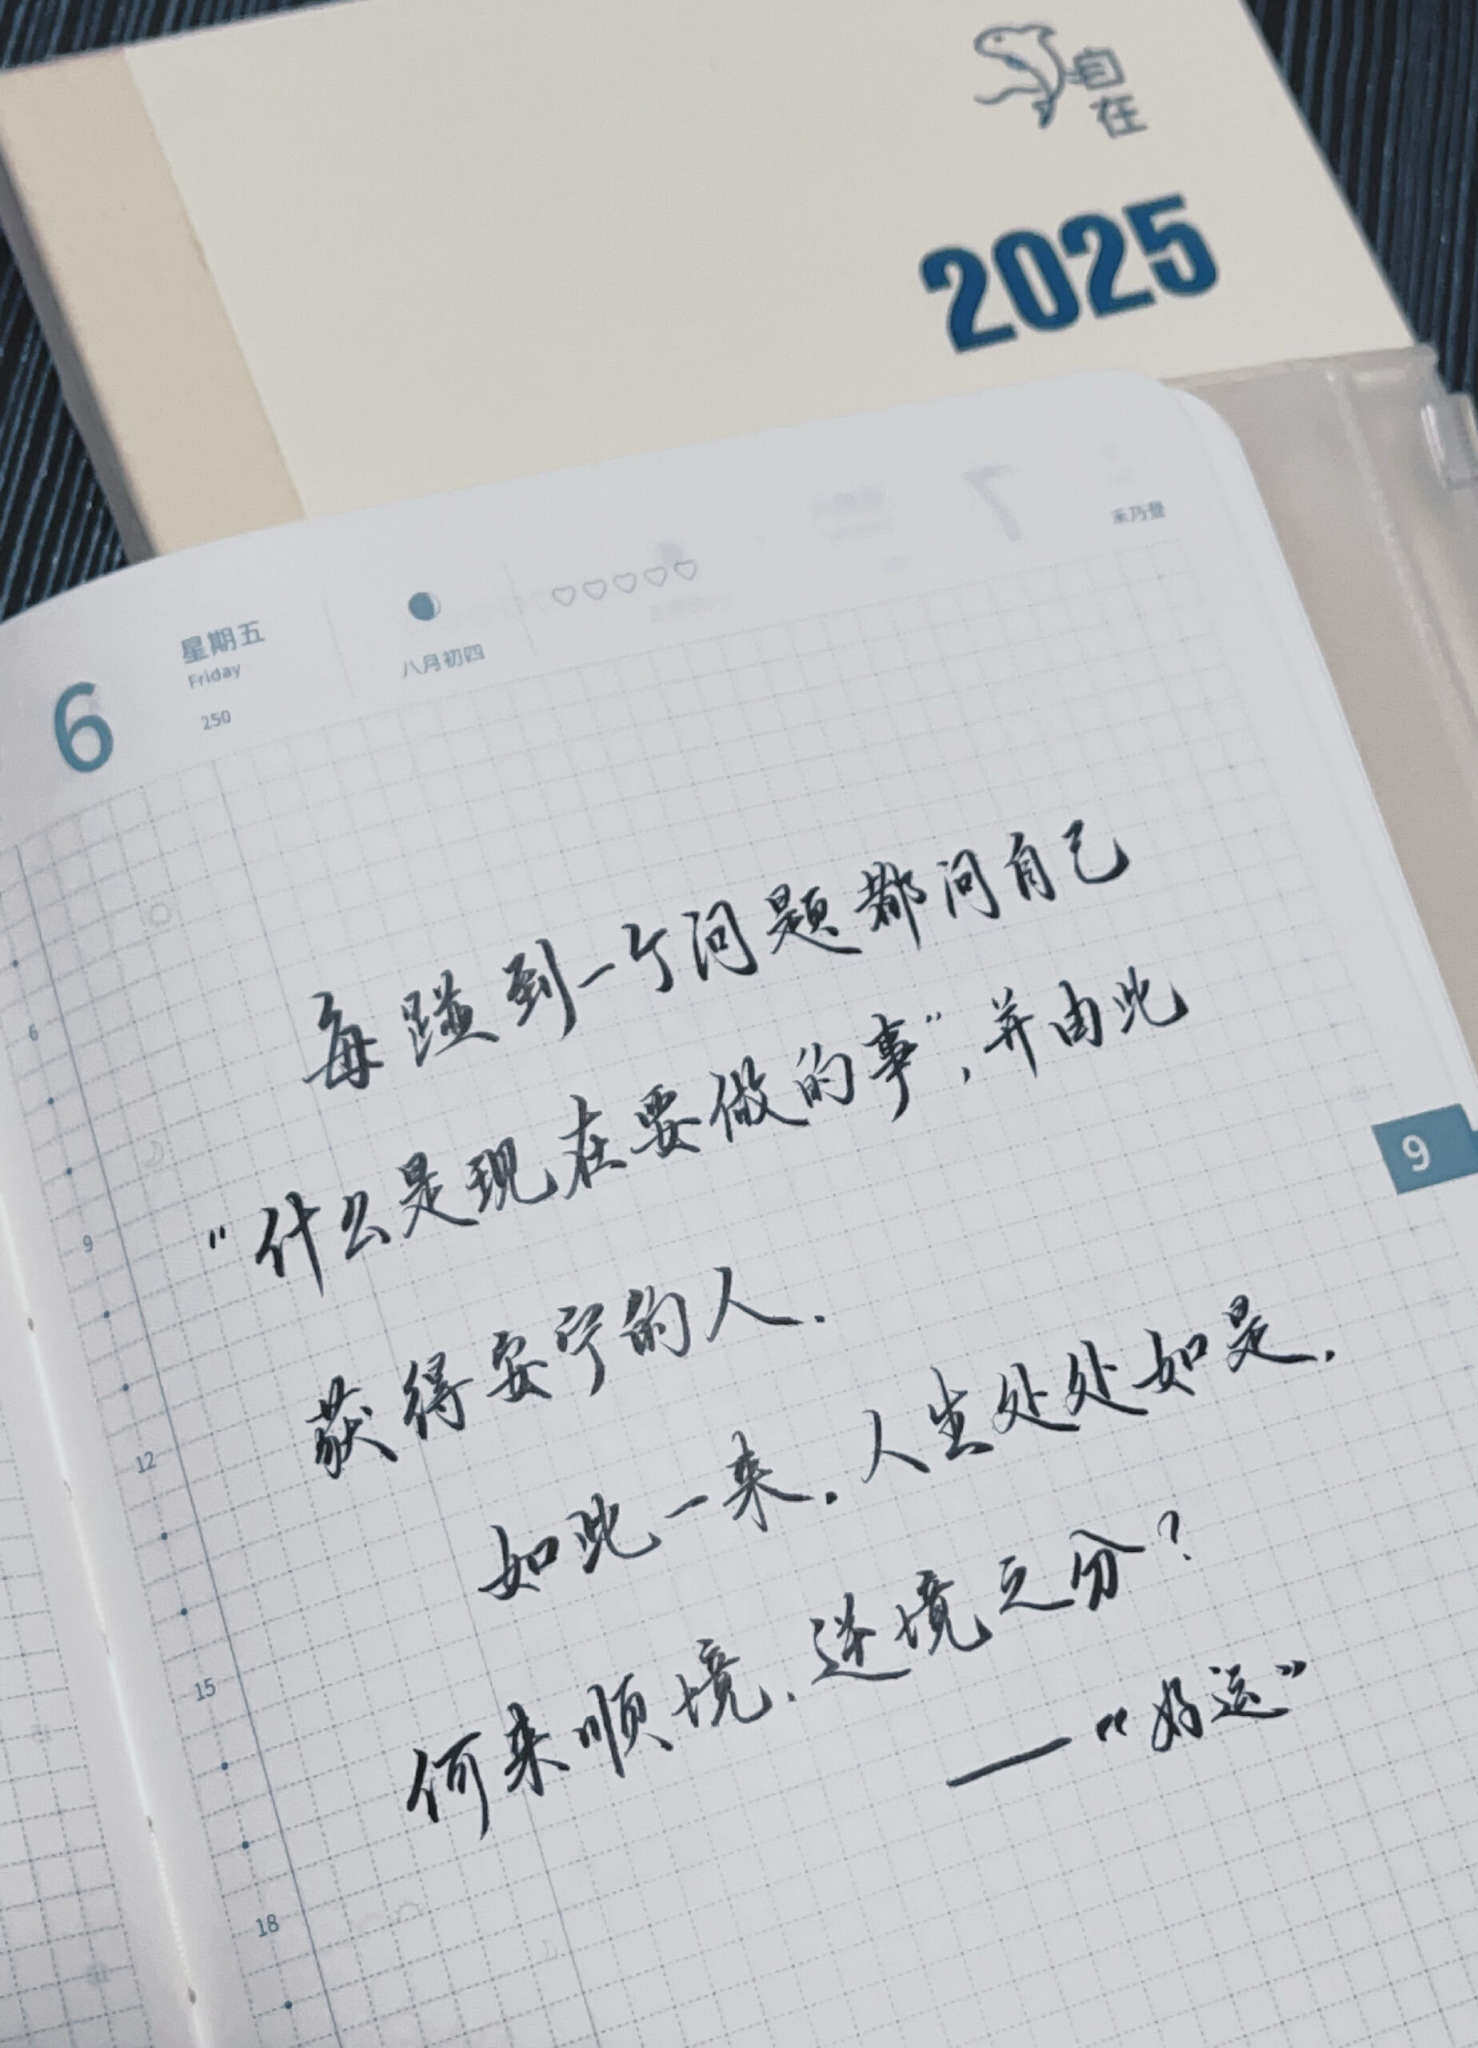 自
在
2025
禾乃登
6
星期五
Friday
250
八月初四
每碰到一个问题都问自己
“什么是现在要做的事”，并由此
获得安宁的人.
如此一来.人生处处如是.
何来顺境.逆境之分?
——“好运”
9
6
9
12
15
18